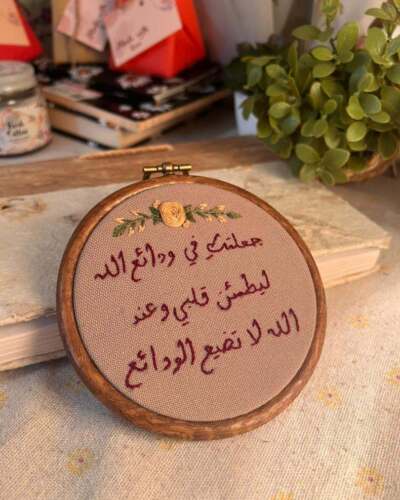 جعلتك في ودائع الله
ليطمئن قلبي وعند
الله لا تضيع الودائع